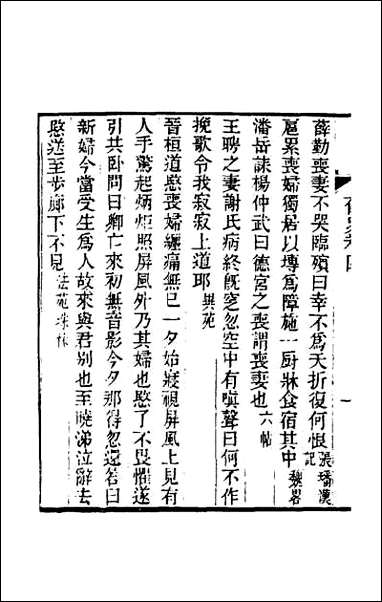 薛勤喪妻不哭臨殯曰幸不爲夭折復何恨張璠漢記
扈累喪婦獨居以塼爲障施一厨牀食宿其中魏畧
潘岳誄楊仲武曰德宮之喪謂喪妻也六帖
王聘之妻謝氏病終旣窆忽空中有嗔聲曰何不作
挽歌令我寂寂上道耶異苑
晉桓道愍喪婦纏痛無已一夕始寢視屏風上見有
人手驚起炳炬照屏風外乃其婦也愍了不畏懼遂
引共卧問曰卿亡來初無音影今夕那得忽還答曰
新婦今當受生爲人故來與君別也至曉涕泣辭去
愍送至步廊下不見法苑珠林